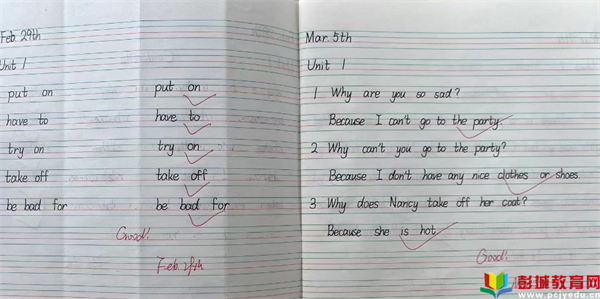 Feb. 29th
Unit 1
put on put on
have to have to
try on try on
take off take off
be bad for be bad for
Good!
Feb. 29th
Mar. 5th
Unit 1
1 Why are you so sad?
Because I can't go to the party.
2 Why can't you go to the party?
Because I don't have any nice clothes or shoes.
3 Why does Nancy take off her coat?
Because she is hot.
Good!
彭城教育网
www.pcjyedu.cn